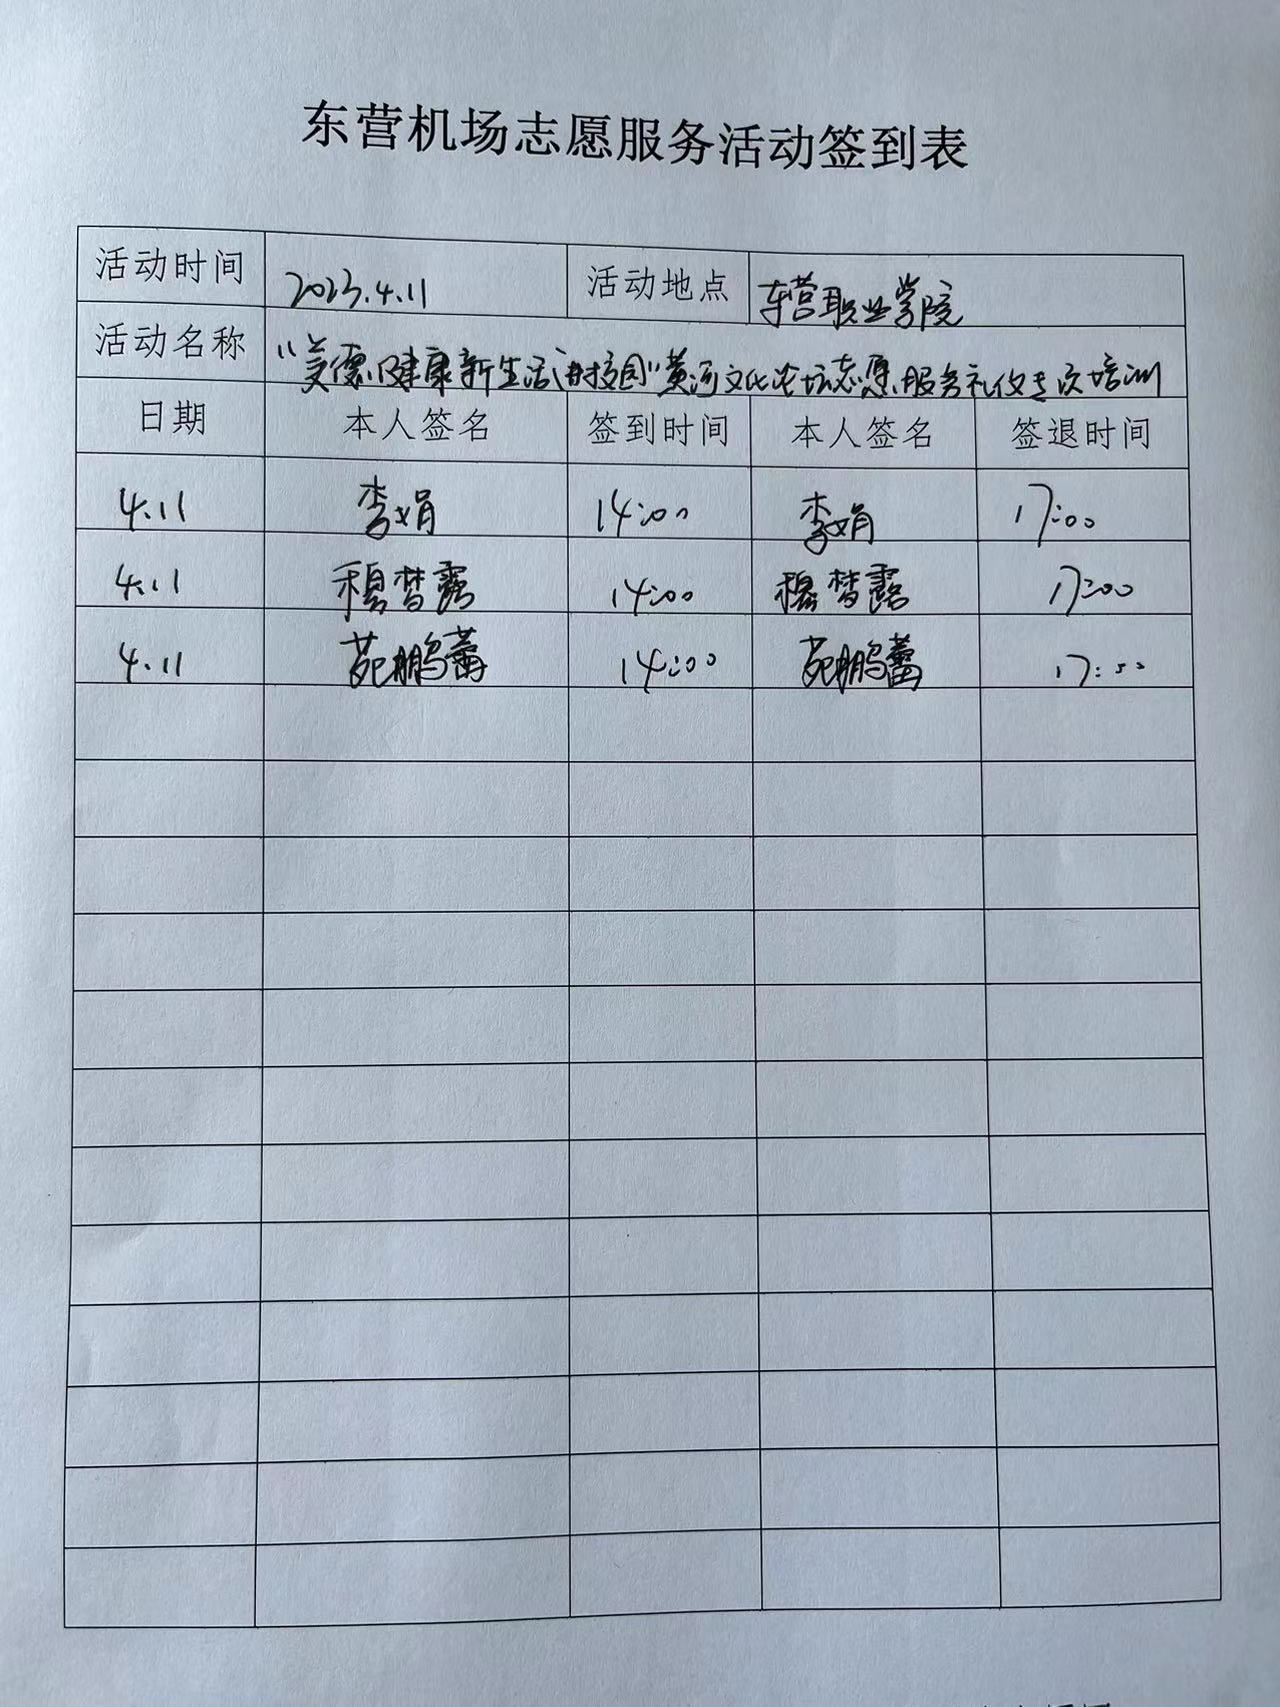 东营机场志愿服务活动签到表
活动时间 2023.4.11 活动地点 东营职业学院
活动名称 “美德健康新生活进校园”黄河文化论坛志愿服务礼仪专次培训
日期 本人签名 签到时间 本人签名 签退时间
4.11 李娟 14:00 李娟 17:00
4.11 穆梦露 14:00 穆梦露 17:00
4.11 苑鹏蕾 14:00 苑鹏蕾 17:00